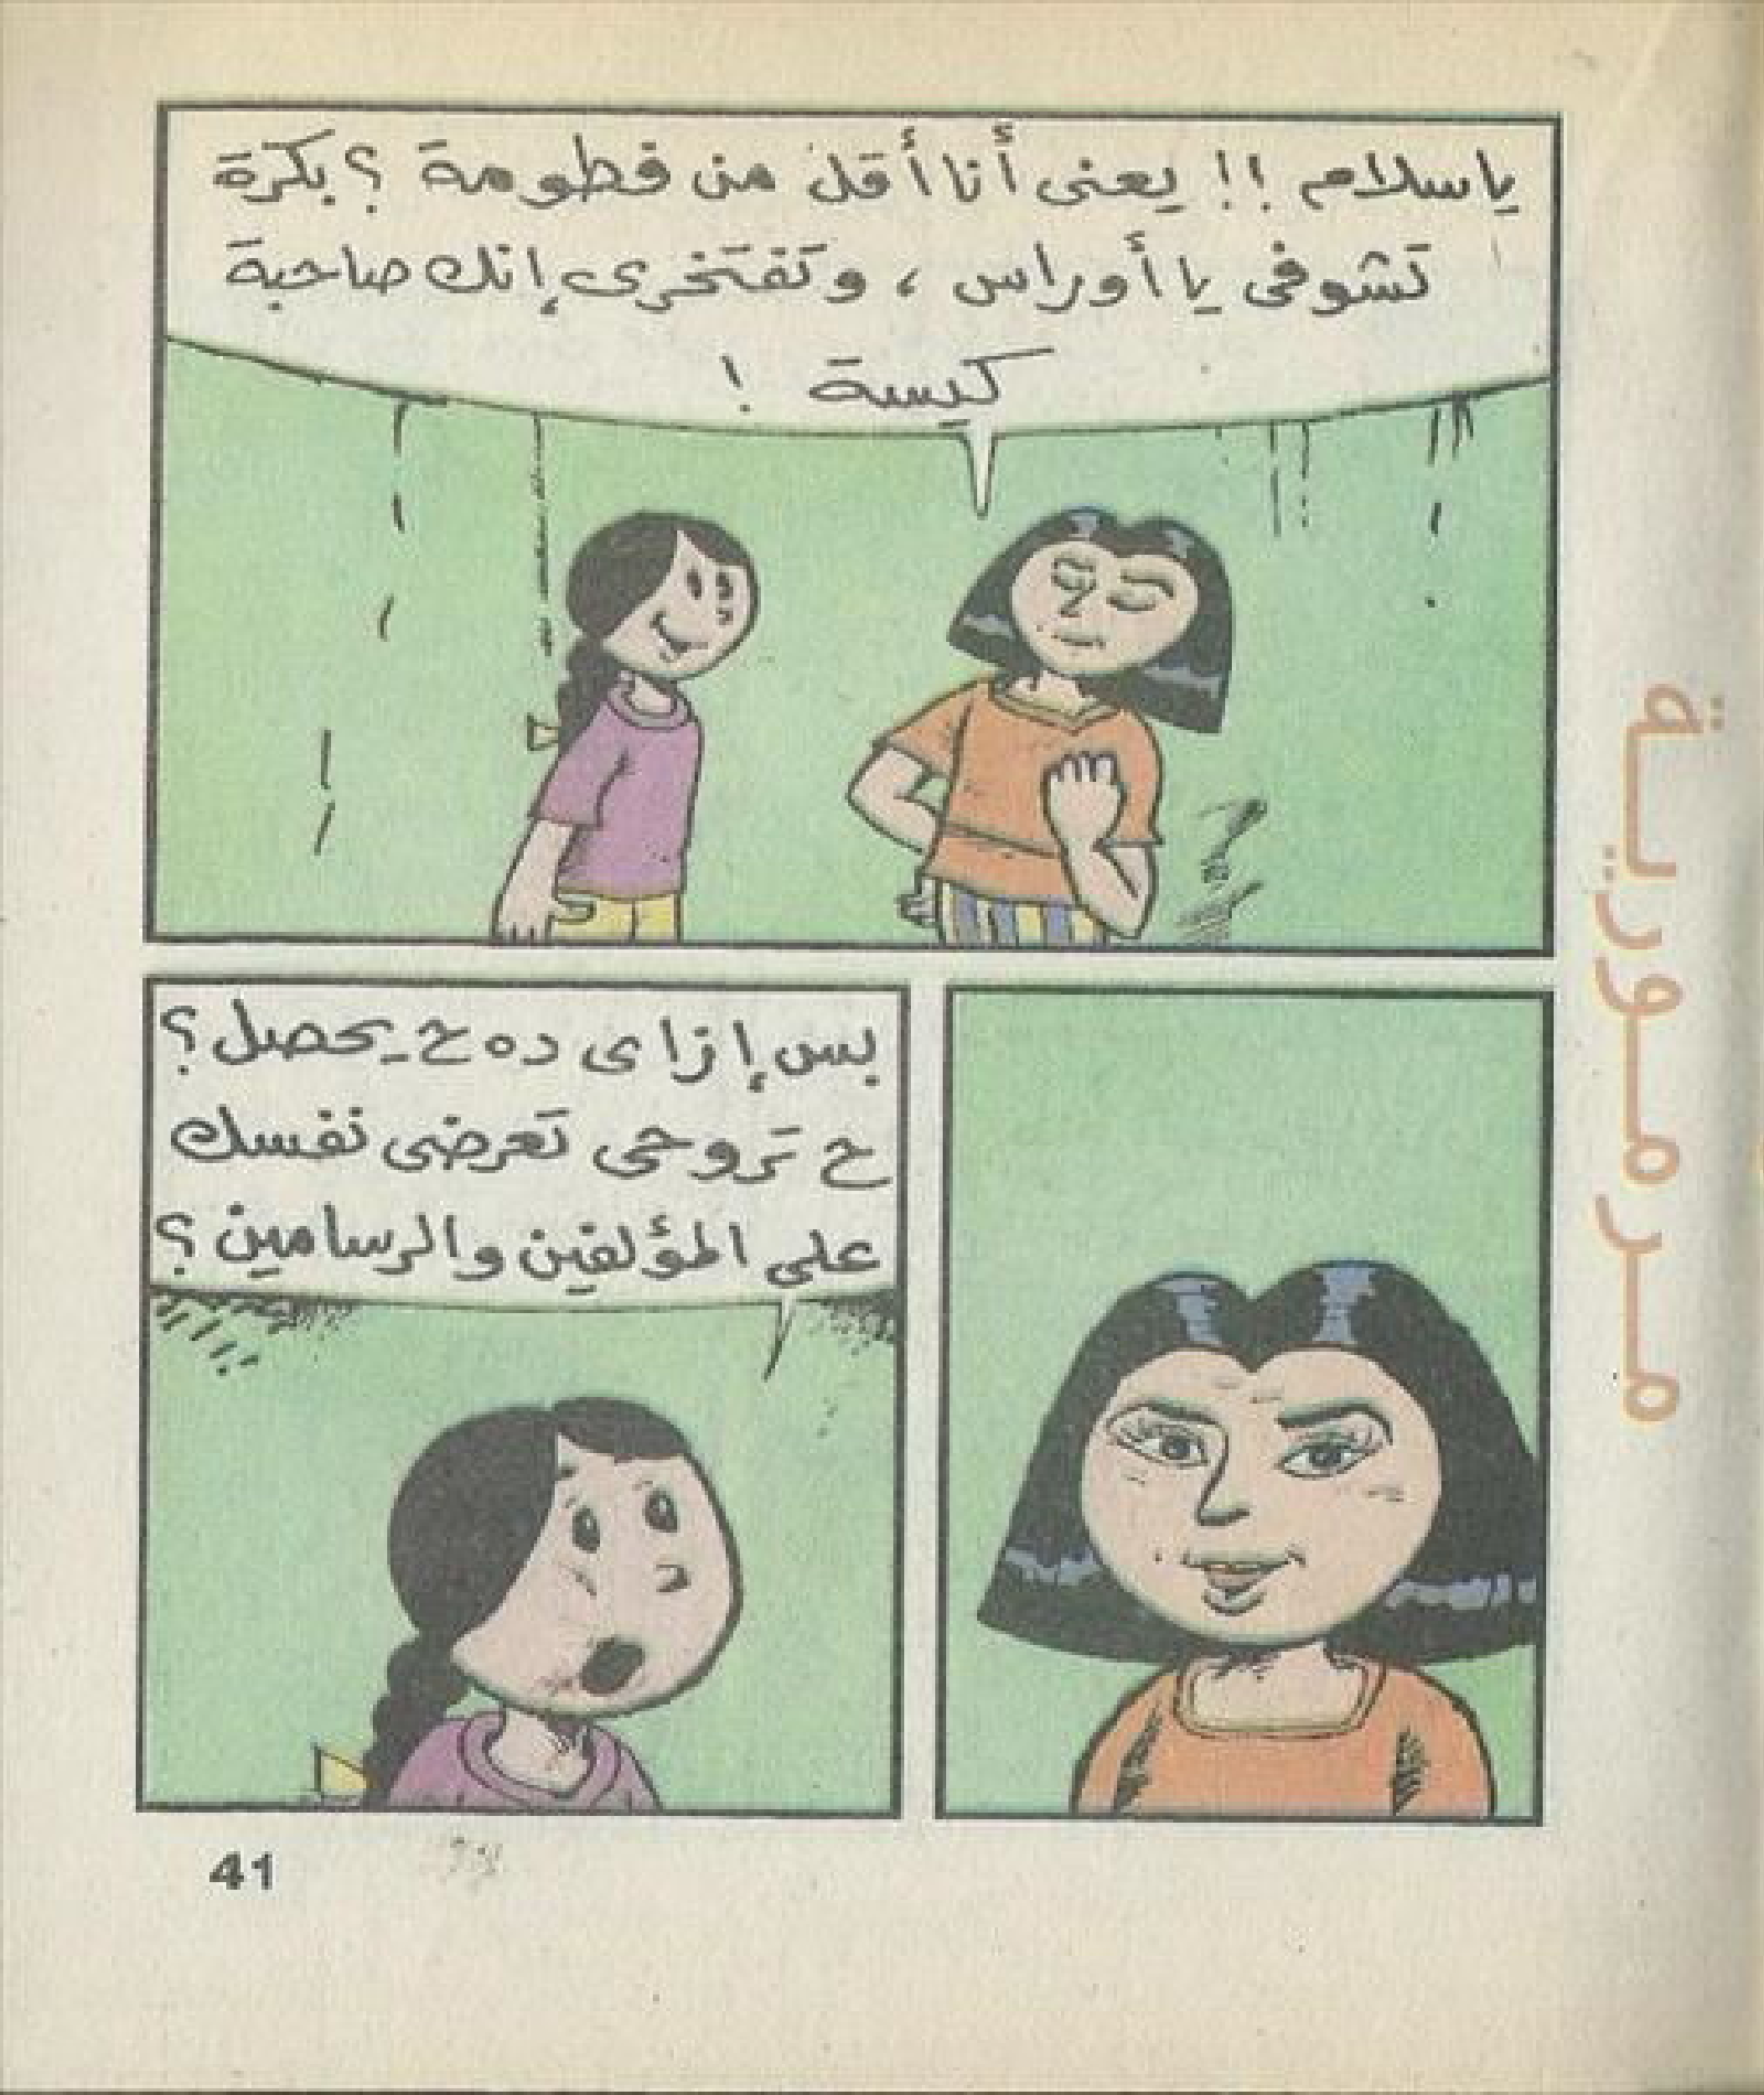 ياسلام !! يعنى أنا أقل من فطومة ؟ بكرة
تشوفى يا أوراس ، وتفتخرى إنك صاحبة
كيسة !
بس إزاى ده ح يحصل ؟
ح تروحى تعرضى نفسك
على المؤلفين والرسامين ؟
41
مرمورية